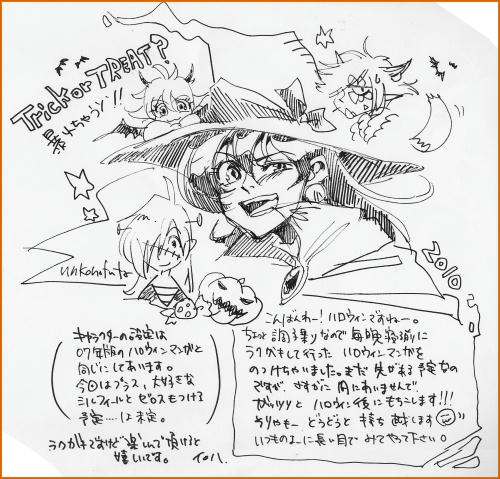 Trick or TREAT?
暴れちゃうゾ!!
unkohofuta
2010
こんばんわー!ハロウィンですねー。
ちょっと調子乗りなので毎晩寝る前に
ラクガキして行ったハロウィンマンガを
のっけちゃいました。まだ先がある予定なの
ですが、さすがに間にあいませんで
ガッツリとハロウィン後にもちこします!!!
ありゃもーどうどうと持ち越します
いつものよーに長い目でみてやって下さい。
キャラクターの設定は
07年版のハロウィンマンガと
同じにしてあります。
今回はプラス、大好きな
シルフィールとゼロスもつける
予定……は未定。
ラクガキですけど楽しんで頂けると
嬉しいです。